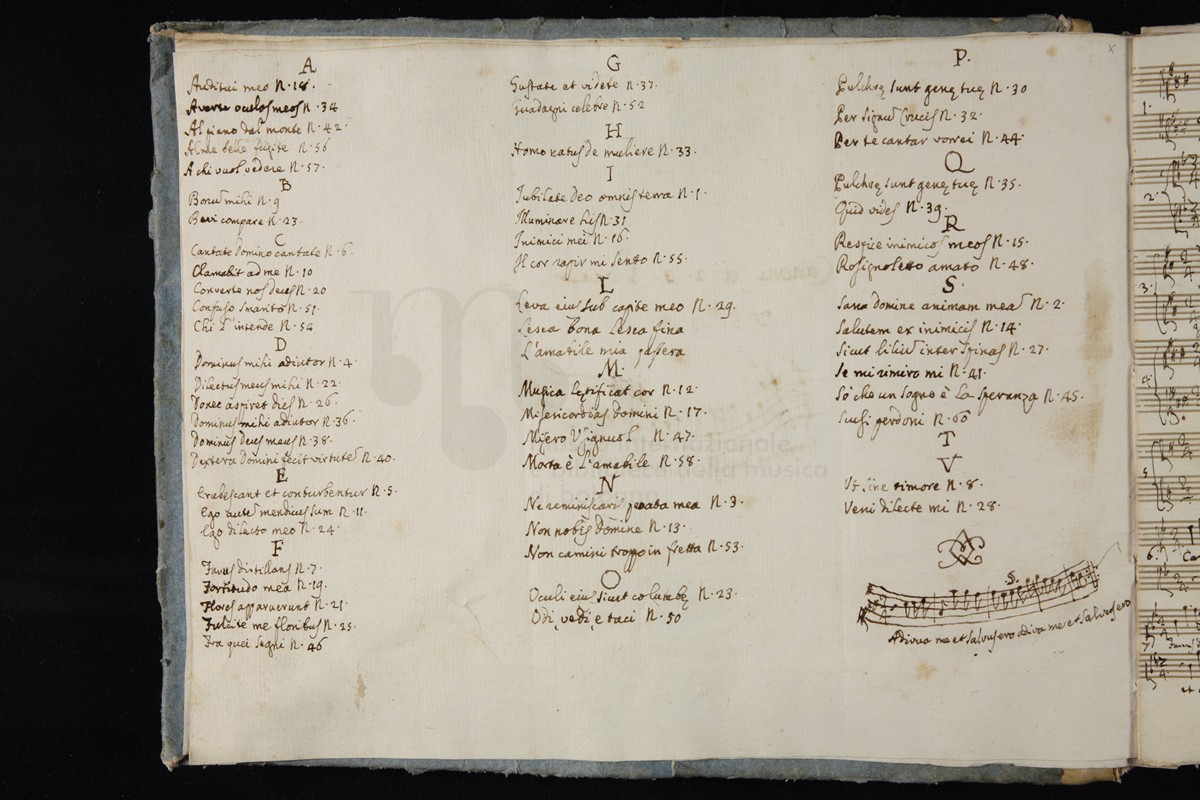 A
Auditui meo N. 18.
Averte oculos meos N. 34
Al piano dal monte N. 42
Alme belle fugite N. 56
A chi vuol vedere N. 57.
B
Bonus mihi N. 9
Bevi compare N. 23.
C
Cantate Domino cantate N. 6.
Clamabit ad me N. 10
Converte nos deus N. 20
Confuso smarito N. 51.
Chi l'intende N. 54
D
Dominus mihi adiutor N. 4.
Dilectus meus mihi N. 22.
Donec aspiret dies N. 26.
Dominus mihi adiutor N. 36.
Dominus Deus meus N. 38.
Dextera Domini fecit virtute N. 40.
E
Erubescant et conturbentur N. 5.
Ego aute mendicus sum N. 11.
Ego dilecto meo N. 24
F
Favus distillans N. 7.
Fortitudo mea N. 19.
Flores apparuerunt N. 21.
Fulcite me floribus N. 25.
Fra quei segni N. 46
G
Gustate et videte N. 37.
Guadagni celebre N. 52
H
Homo natus de muliere N. 33.
I
Jubilate Deo omnis terra N. 1.
Illuminare his N. 31
Inimici mei N. 16.
Il cor rapir mi sento N. 55.
L
Leva eius sub capite meo N. 29.
Lesca bona lesca fina
L'amabile mia passera
M.
Musica lętificat cor N. 12
Misericordias domini N. 17.
Misero N. 47.
Morta è l'amabile N. 58.
N
Ne reminiscaris peccata mea N. 3.
Non nobis domine N. 13.
Non camini troppo in fretta N. 53.
O
Oculi eius sicut columbę N. 23.
Odi, vedi, e taci N. 50
P.
Pulchrę sunt genę tuę N. 30
Per signu Crucis N. 32.
Per te cantar vorrei N. 44.
Q
Pulchrę sunt genę tuę N. 35.
Quid vides N. 39.
R
Respice inimicos meos N. 15.
Rosignoletto amato N. 48.
S.
Sana domine animam mea N. 2.
Salutem ex inimicis N. 14.
Sicut liliu inter spinas N. 27.
Se mi rimiro mi N. 41.
So che un sogno è la speranza N. 45.
Scusi perdoni N. 60
T
V
Ut sine timore N. 8.
Veni dilecte mi N. 28.
.S.
Adiuva me et salvus ero adiva me et salvus ero
x
1.
2.
3.
4.
5
6.
7.
internazionale
biblioteca della musica
di bologna